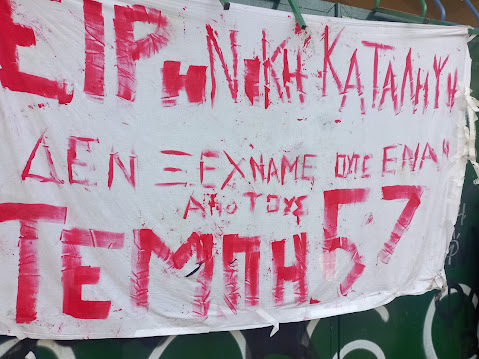 ΕΙΡΗΝΙΚΗ ΚΑΤΑΛΗΨΗ
ΔΕΝ ΞΕΧΝΑΜΕ ΟΥΤΕ ΕΝΑΝ
ΑΠΟ ΤΟΥΣ
ΤΕΜΠΗ 57